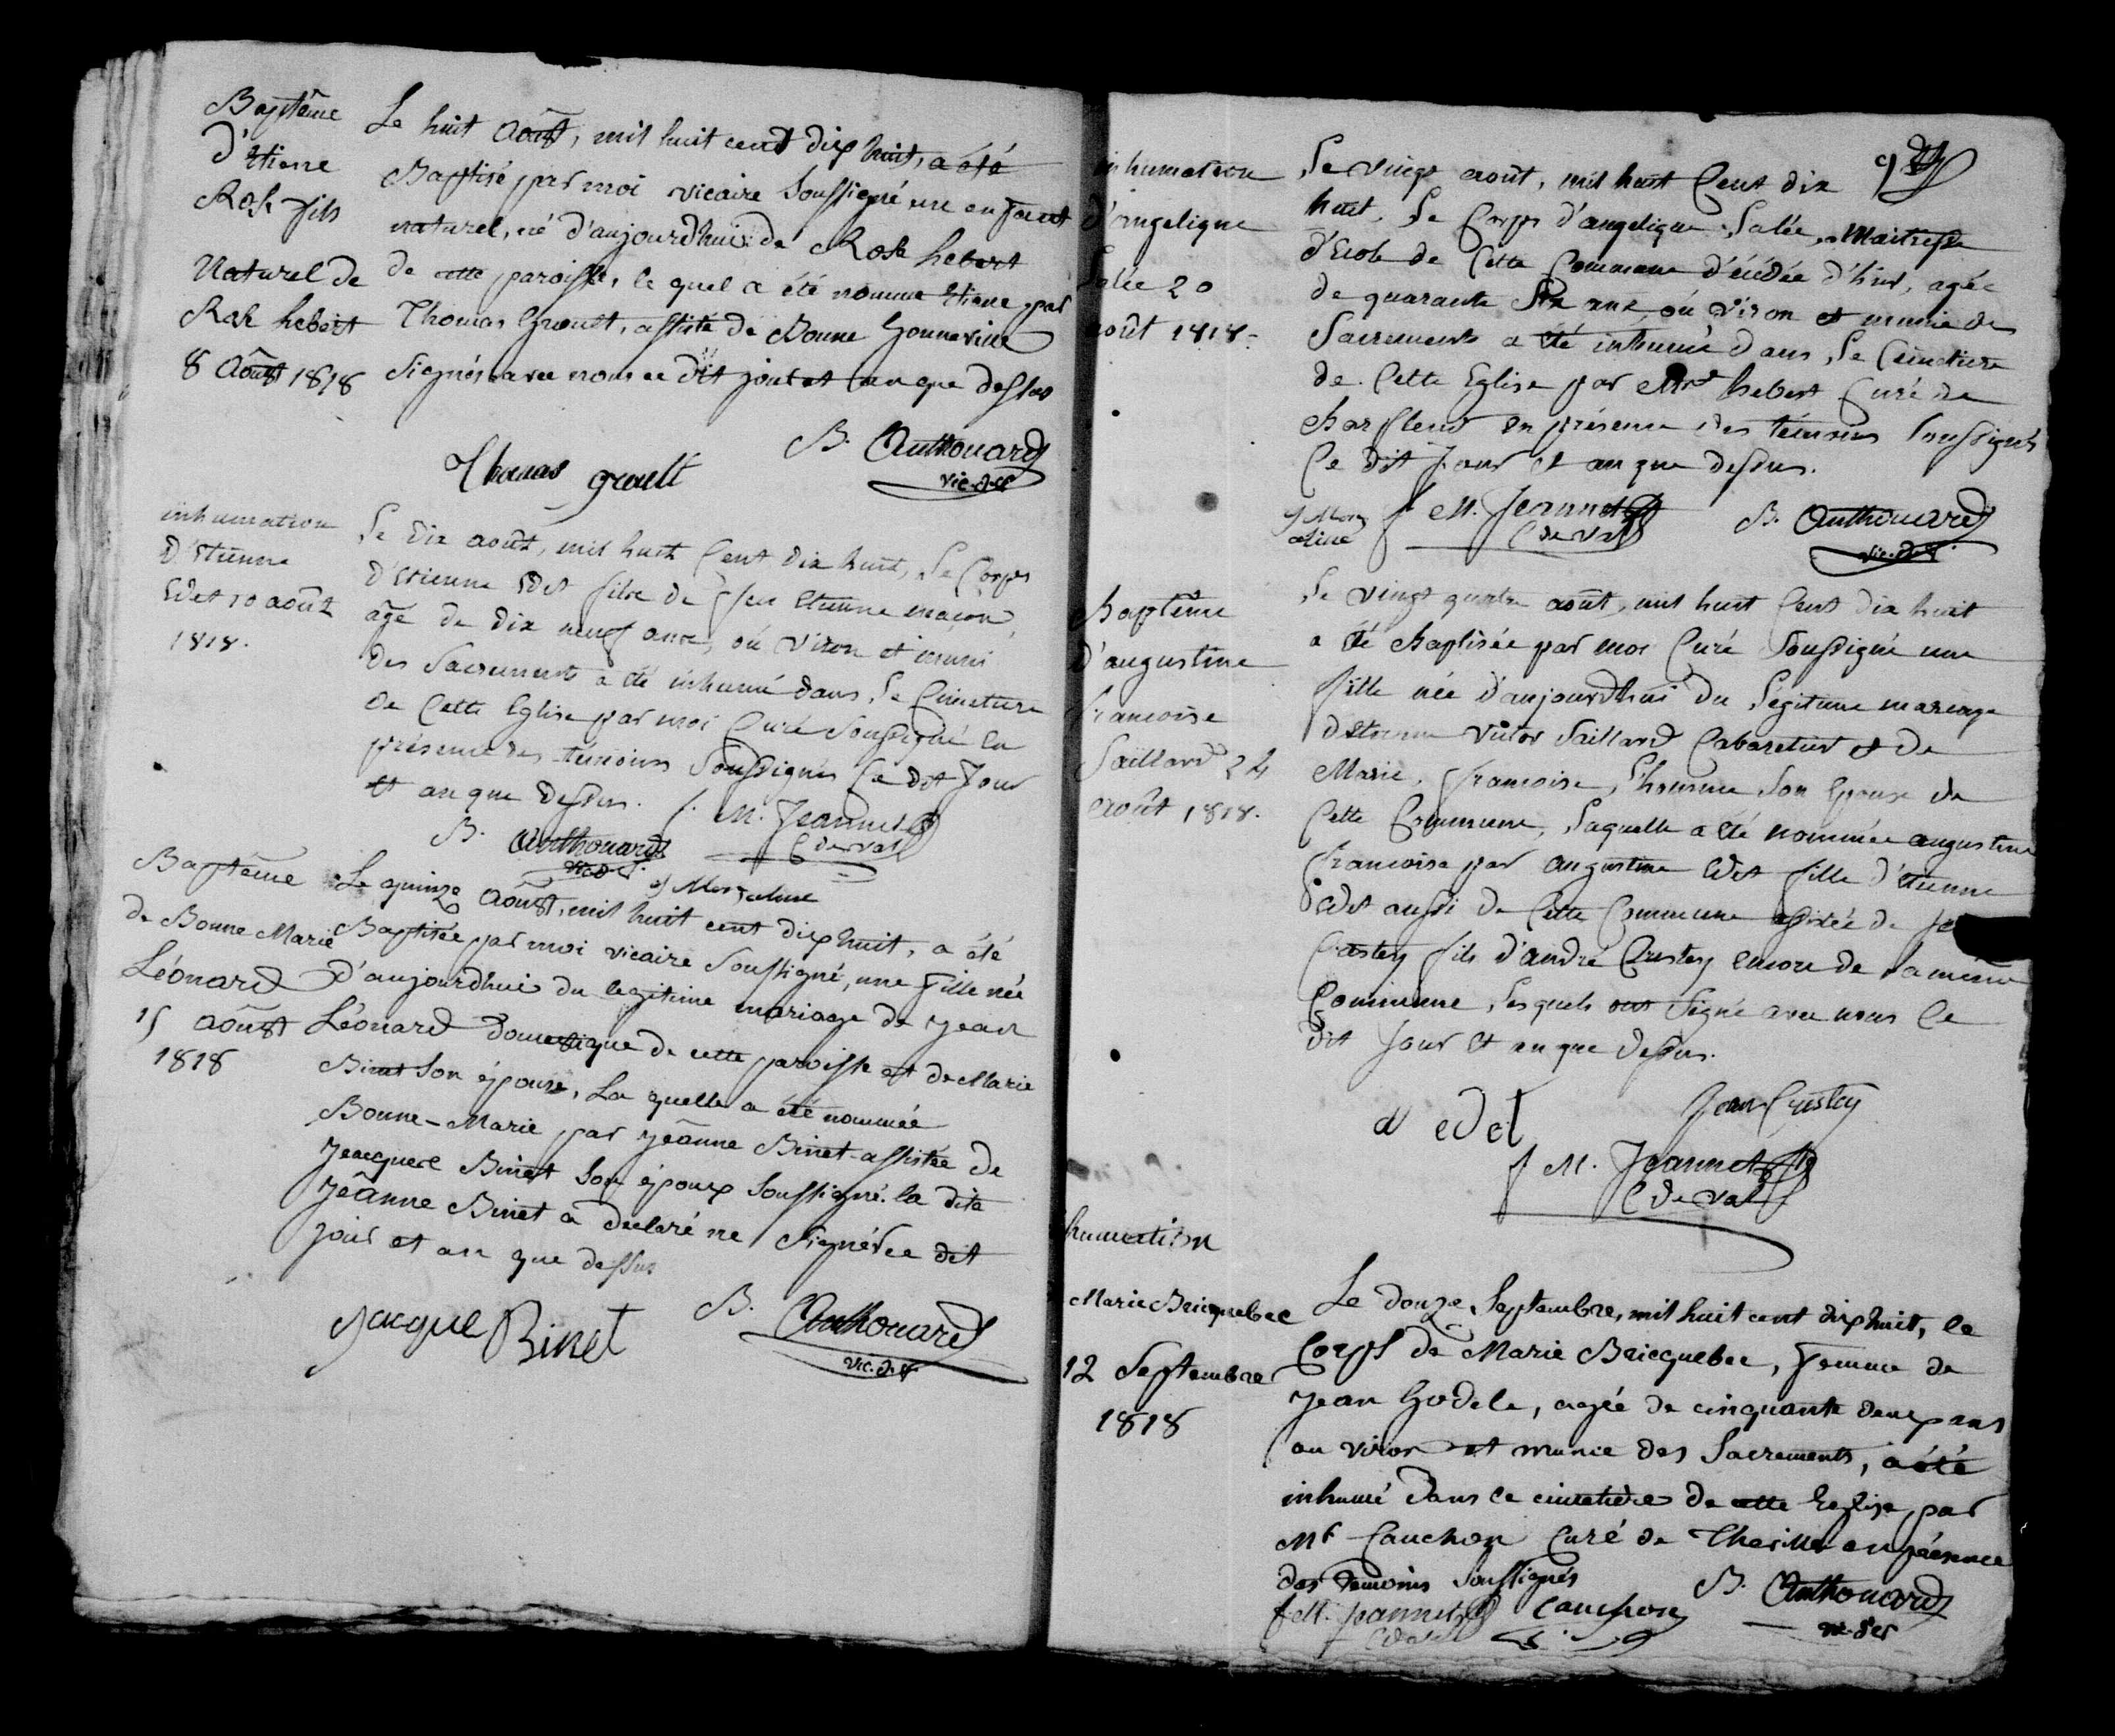 Baptême
d'Etiene
Rose fils
Naturel de
Rose hebert
8 Août 1818
Le huit Août, mil huit cent dix huit, a été
Baptisé par moi vicaire Soussigné un enfant
naturel, né d'aujourdhui de Rose hebert
de cette paroisse, le quel a été nomme Etiene par
Thomas Groult, assisté de Bonne Gonneville
Signés avec nous ce dit jour et an que dessus
B. Anthouard
Thomas groult
vic.
inhumation
d'Etienne
Edet 10 août
1818.
Le dix août, mil huit Cent dix huit, Le Corps
d'Etienne Edet fils de feu Etienne maçon,
âgé de dix neuf ans, où viron et muni
des Sacrements a été inhumé dans Le Cimetiere
de Cette Eglise par moi Curé Soussigné en
présence des témoins Soussignés Ce dit Jour
et an que dessus.
f. M. Jeannet
C de val
B. Anthouard
vic.
Baptême
de Bonne Marie
Léonard
15 Août
1818
Le quinze Août, mil huit cent dix huit, a été
Baptisée par moi vicaire Soussigné, une fille née
d'aujourdhui du legitime mariage de Jean
Léonard Domestique de cette paroisse et de Marie
Binet Son épouse, La quelle a été nommée
Bonne-Marie par Jeânne Binet assistée de
Jeacques Binet Son époux Soussigné. la dite
Jeânne Binet a declaré ne Signér ce dit
jour et an que dessus
Jacque Binet
B. Anthouard
vic.
inhumation
d'angelique
Salée 20
août 1818.
Le vingt août, mil huit Cent dix
huit. Le Corps d'angelique Salée, Maitresse
d'Ecole de Cette Commune d'écédée d'hier, agée
de quarante Six ans, où viron et munie des
Sacrements a été inhumé dans Le Cimetiere
de Cette Eglise par Mr hebert Curé de
Barfleur en présence des témoins Soussignés
Ce dit Jour et an que dessus.
f M. Jeannet
C de val
B. Anthouard
vic.
Baptême
D'augustine
francoise
Saillard 24
août 1818.
Le vingt quatre août, mil huit Cent dix huit
a été Baptisée par moi Curé Soussigné une
fille née d'aujourdhui du Légitime mariage
d'Etienne Victor Saillard Cabaretier et de
Marie. francoise Lhomme Son Epouse de
Cette Commune, Laquelle a été nommée augustine
francoise par augustine Edet fille d'Etienne
Edet aussi de Cette Commune assistée de
Crestey fils d'andré Crestey encore de la même
Commune, Lesquels ont Signé avec nous Ce
dit Jour et an que dessus.
a edet
Jean Crestey
f M. Jeannet
C de val
humation
Marie Bricquebec
12 Septembre
1818
Le douze Septembre, mil huit cent dix huit, le
Corps de Marie Bricquebec, femme de
Jean Godele, agée de cinquante deux ans
ou viron et munie des Sacrements, a été
inhumé dans le cimetière de cette Eglise par
Mr Cauchon Curé de Theville en présence
des temoins Soussignés
f M. Jeannet
Cauchon
B. Anthouard